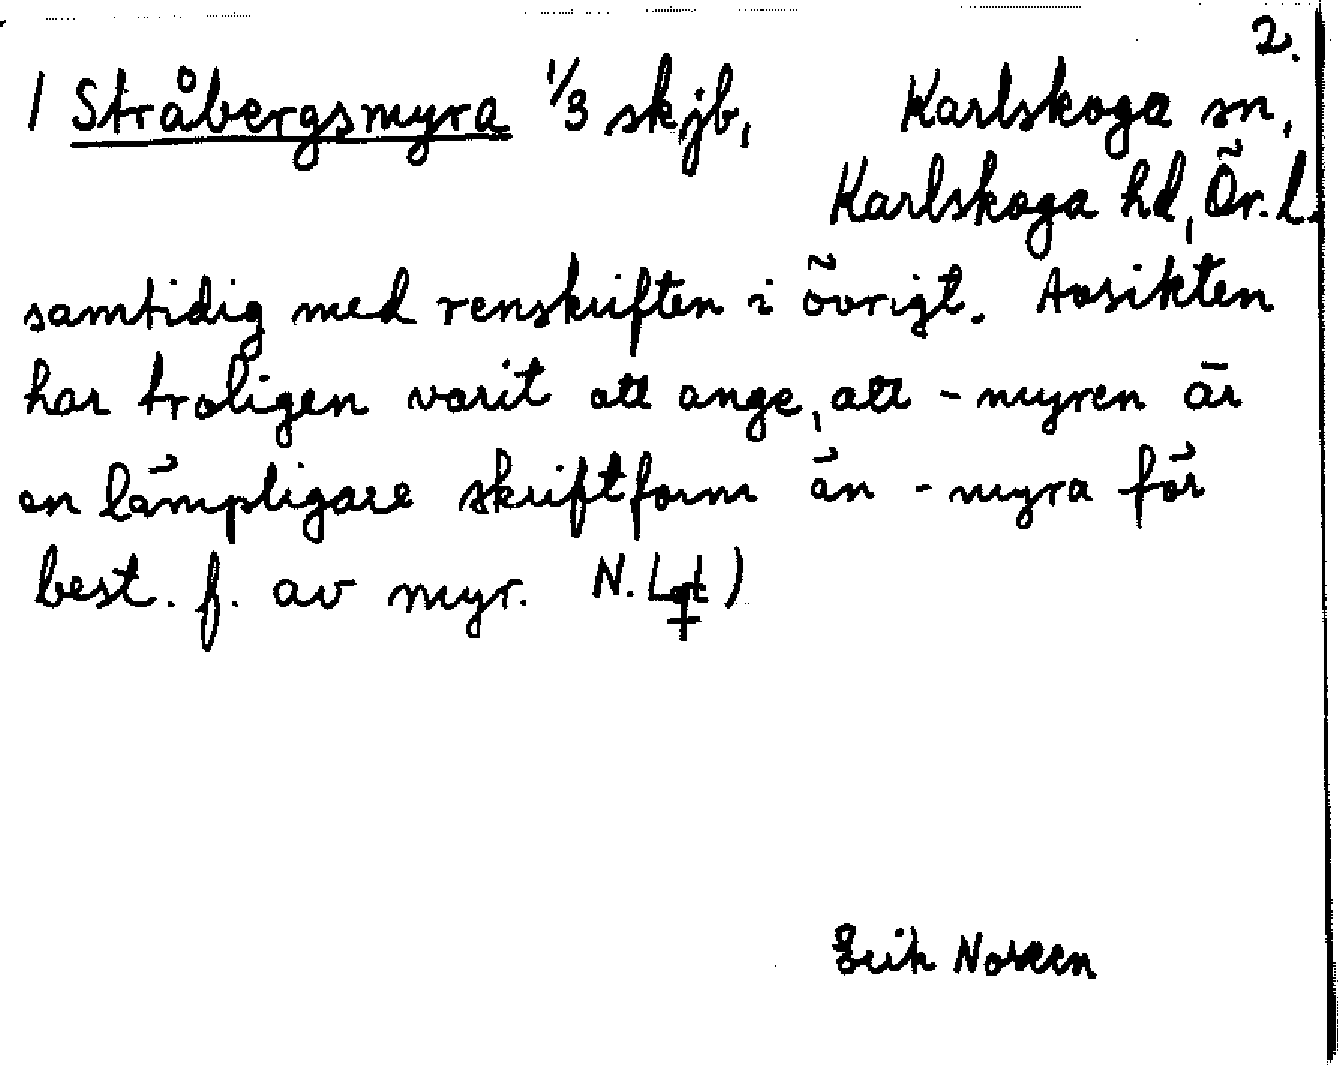 2.
1 Stråbergsmyra 1/3 skjb, Karlskoga sn,
Karlskoga hd, Ör. l.
samtidig med renskriften i övrigt. Avsikten
har troligen varit att ange, att -myren är
en lämpligare skriftform än -myra för
best. f. av myr. N. Lqt)
Erik Noreen